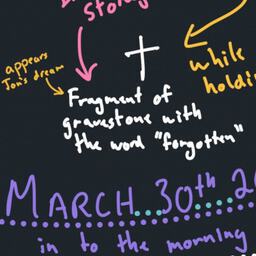 story
appears
Jon's dream
while
Fragment of
gravestone with
the word "forgotten"
MARCH 30th
in to the morning